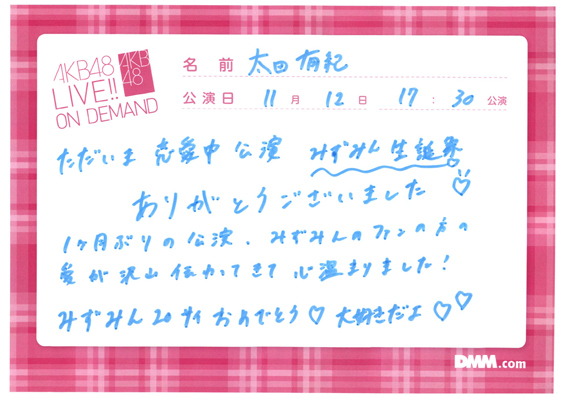 AKB48
LIVE!!
ON DEMAND
AKB
48
名前 太田有紀
公演日 11月 12日 17:30 公演
ただいま 恋愛中 公演 みずみん生誕祭
ありがとうございました♡
1ヶ月ぶりの公演、みずみんのファンの方の
愛が沢山伝わってきて心温まりました!
みずみん20才おめでとう♡大好きだよ♡♡
DMM.com